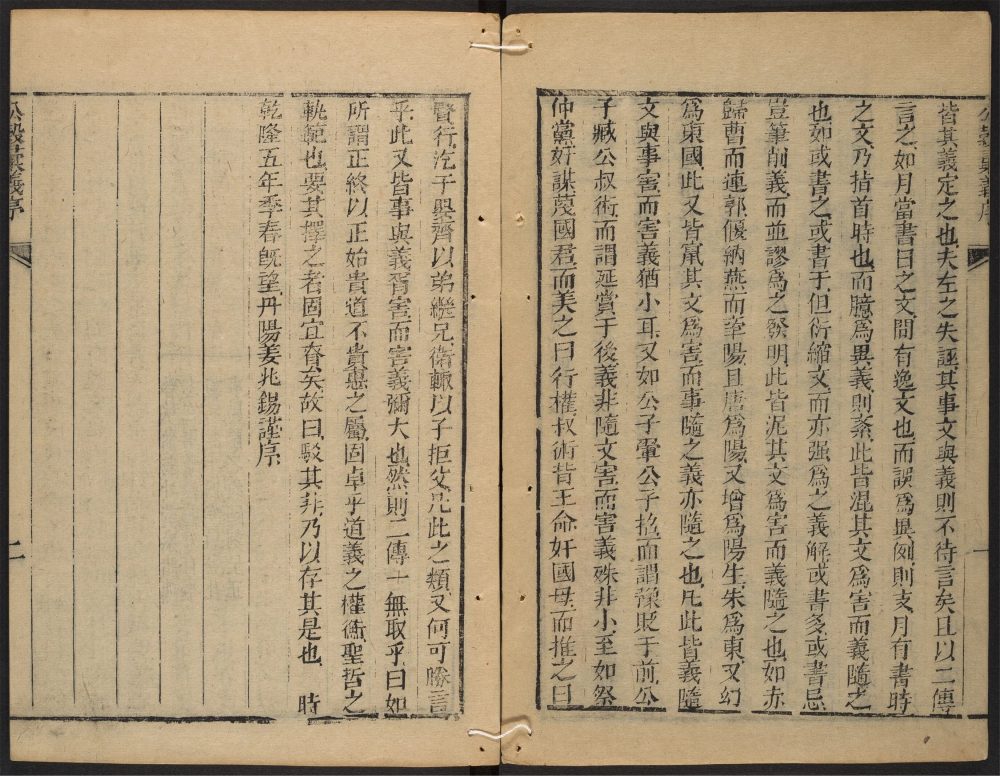 皆其義定之也夫左之失誣其事文與義則不待言矣且以二傳
言之如月當書日之文間有逸文也而誤爲異例則支月有書時
之文乃指首時也而臆爲異義則紊此皆混其文爲害而義隨之
也如或書之或書于但衍縮文而亦强爲之義解或書多或書忌
豈筆削義而並謬爲之發明此皆泥其文爲害而義隨之也如赤
歸曹而連郭偃納燕而牽陽且唐爲陽又增爲陽生朱爲東又幻
爲東國此又皆竄其文爲害而事隨之義亦隨之也凡此皆義隨
文與事害而害義猶小耳又如公子翬公子搖而謂豫貶于前公
子臧公叔術而謂延賞于後義非隨文害而害義殊非小至如祭
仲黨奸謀蔑國君而美之曰行權叔術昔王命奸國母而推之曰
賢行沱子嬰齊以弟繼兄衞輙以子拒父凡此之類又何可勝言
乎此又皆事與義胥害而害義彌大也然則二傳一無取乎曰如
所謂正終以正始貴道不貴惠之屬固卓乎道義之權衡聖哲之
軌範也要其擇之者固宜有矣故曰駁其非乃以存其是也 時
乾隆五年季春旣望丹陽姜兆錫謹序
公穀彙義序
一
公穀彙義序
二